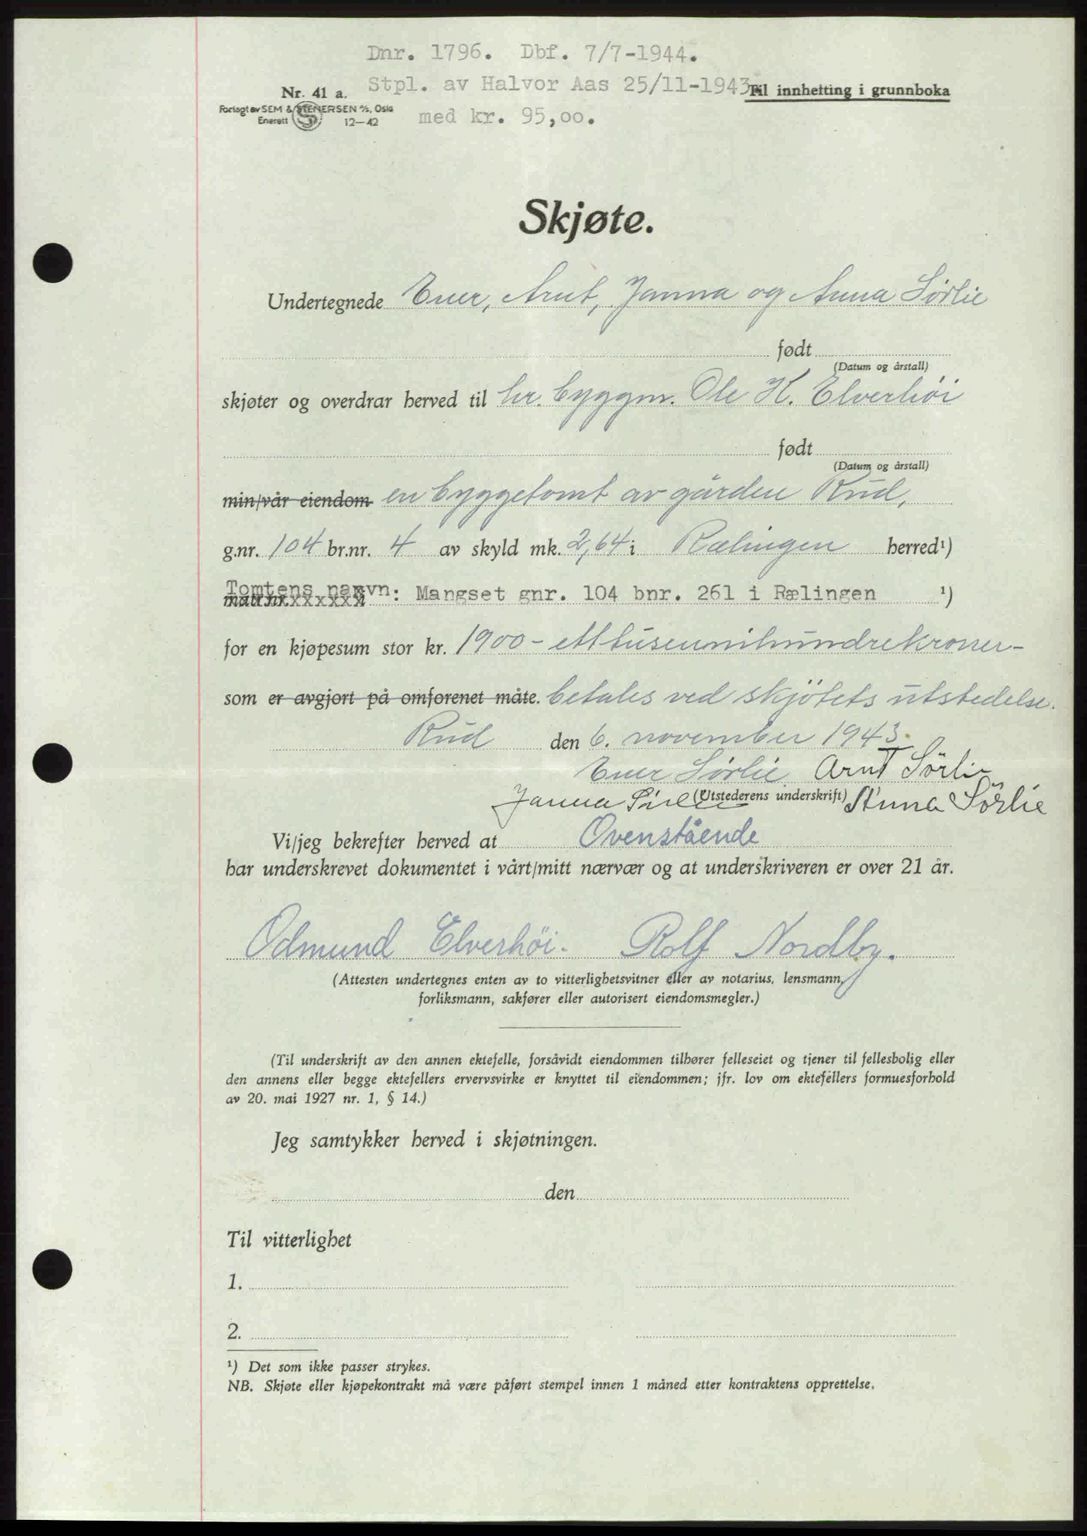 Dnr. 1796. Dbf. 7/7-1944.
Stpl. av Halvor Aas 25/11-1943
Nr. 41 a.
Til innhefting i grunnboka
Forlagt av SEM & STENERSEN A/S, Oslo
Enerett 12-42
med kr. 95,oo.
Skjøte.
Undertegnede Einer, Arnt, Janna og Anna Sørlie
født
(Datum og årstall)
skjøter og overdrar herved til hr. byggm. Ole H. Elverhöi
født
(Datum og årstall)
min/vår eiendom en byggetomt av gården Rud,
g.nr. 104 br.nr. 4 av skyld mk. 2,64 i Rælingen herred¹)
Tomtens navn: Mangset gnr. 104 bnr. 261 i Rælingen ¹)
for en kjøpesum stor kr. 1900 - ettusennihundrekroner -
som er avgjort på omforenet måte. betales ved skjötets utstedelse.
Rud den 6. november 1943.
Einer Sørlie Arnt Sörlie
Janna (Utstederens underskrift) Anna Sörlie
Vi/jeg bekrefter herved at Ovenstående
har underskrevet dokumentet i vårt/mitt nærvær og at underskriveren er over 21 år.
Odmund Elverhöi. Rolf Nordby.
(Attesten undertegnes enten av to vitterlighetsvitner eller av notarius, lensmann,
forliksmann, sakfører eller autorisert eiendomsmegler.)
(Til underskrift av den annen ektefelle, forsåvidt eiendommen tilhører felleseiet og tjener til fellesbolig eller
den annens eller begge ektefellers ervervsvirke er knyttet til eiendommen; jfr. lov om ektefellers formuesforhold
av 20. mai 1927 nr. 1, § 14.)
Jeg samtykker herved i skjøtningen.
den
Til vitterlighet
1.
2.
¹) Det som ikke passer strykes.
NB. Skjøte eller kjøpekontrakt må være påført stempel innen 1 måned etter kontraktens opprettelse.